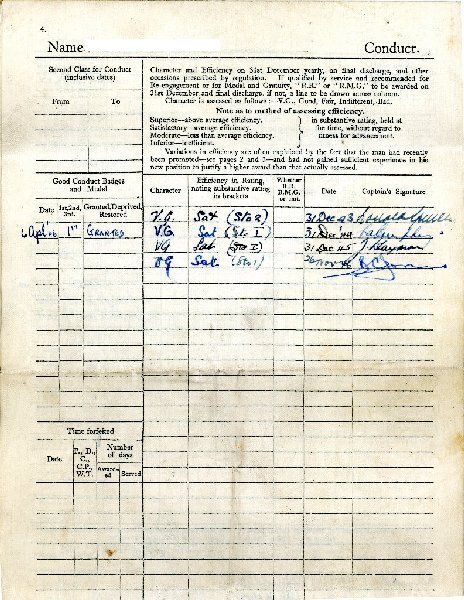 4.
Name Conduct.
Second Class for Conduct
(inclusive dates)
From To
Character and Efficiency on 31st December yearly, on final discharge, and other
occasions prescribed by regulation. If qualified by service and recommended for
Re-engagement or for Medal and Gratuity, "R.E." or "R.M.G." to be awarded on
31st December and final discharge, if not, a line to be drawn across column.
Character is assessed as follows:—V.G., Good, Fair, Indifferent, Bad.
Note as to method of assessing efficiency.
Superior—above average efficiency.
Satisfactory—average efficiency.
Moderate—less than average efficiency.
Inferior—inefficient.
in substantive rating, held at
the time, without regard to
fitness for advancement.
Variations in efficiency are often explained by the fact the man had recently
been promoted—see pages 2 and 3—and had not gained sufficient experience in his
new position to justify a higher award than that actually assessed.
Good Conduct Badges
and Medal
Date 1st, 2nd, 3rd. Granted, Deprived, Restored
Character
Efficiency in Rating,
noting substantive rating
in brackets
Whether
R.E.
R.M.G.
or not.
Date
Captain's Signature
V.G. Sat (Sto 2) 31 Dec 43
1st GRANTED V.G. Sat (Sto I) 31 Dec 44
VG Sat (Sto I) 31 Dec 45
VG Sat (Sto 1) Nov 46
Time forfeited
Date
Number
of days
Award-
ed
Served